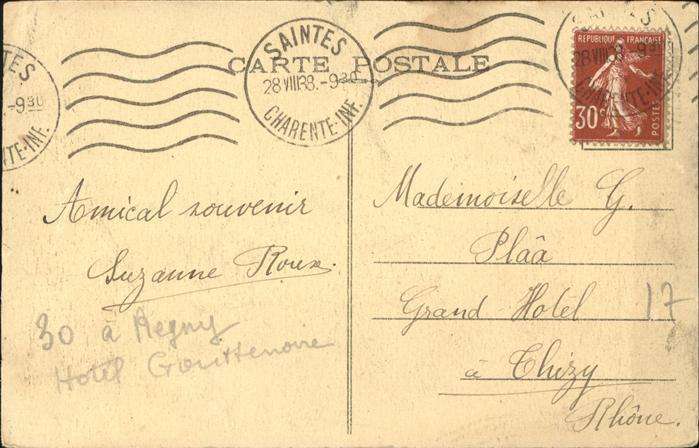 TES
-9 30
NTE-INF.
SAINTES
28 VIII 38 -9 30
CHARENTE-INF.
CARTE POSTALE
REPUBLIQUE FRANÇAISE
30 c
POSTES
Amical souvenir
Suzanne Roux.
30 à Regny
Hotel
Mademoiselle G.
Plaâ
Grand Hotel
17
à Thizy
Rhône.